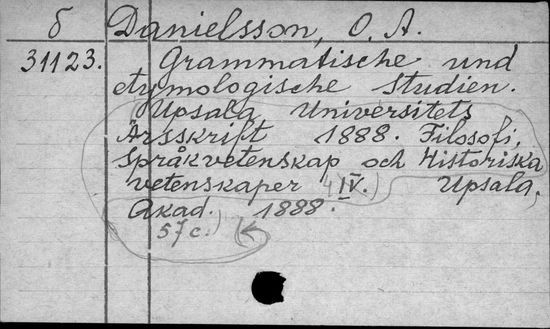 б Danielsson, O. A.
31123. Grammatische und
etymologische Studien.
Upsala, Universitets
Årsskrift 1888. Filosofi,
Språkvetenskap och Historiska
vetenskaper IV.) Upsala,
Akad. 1888.
57c.